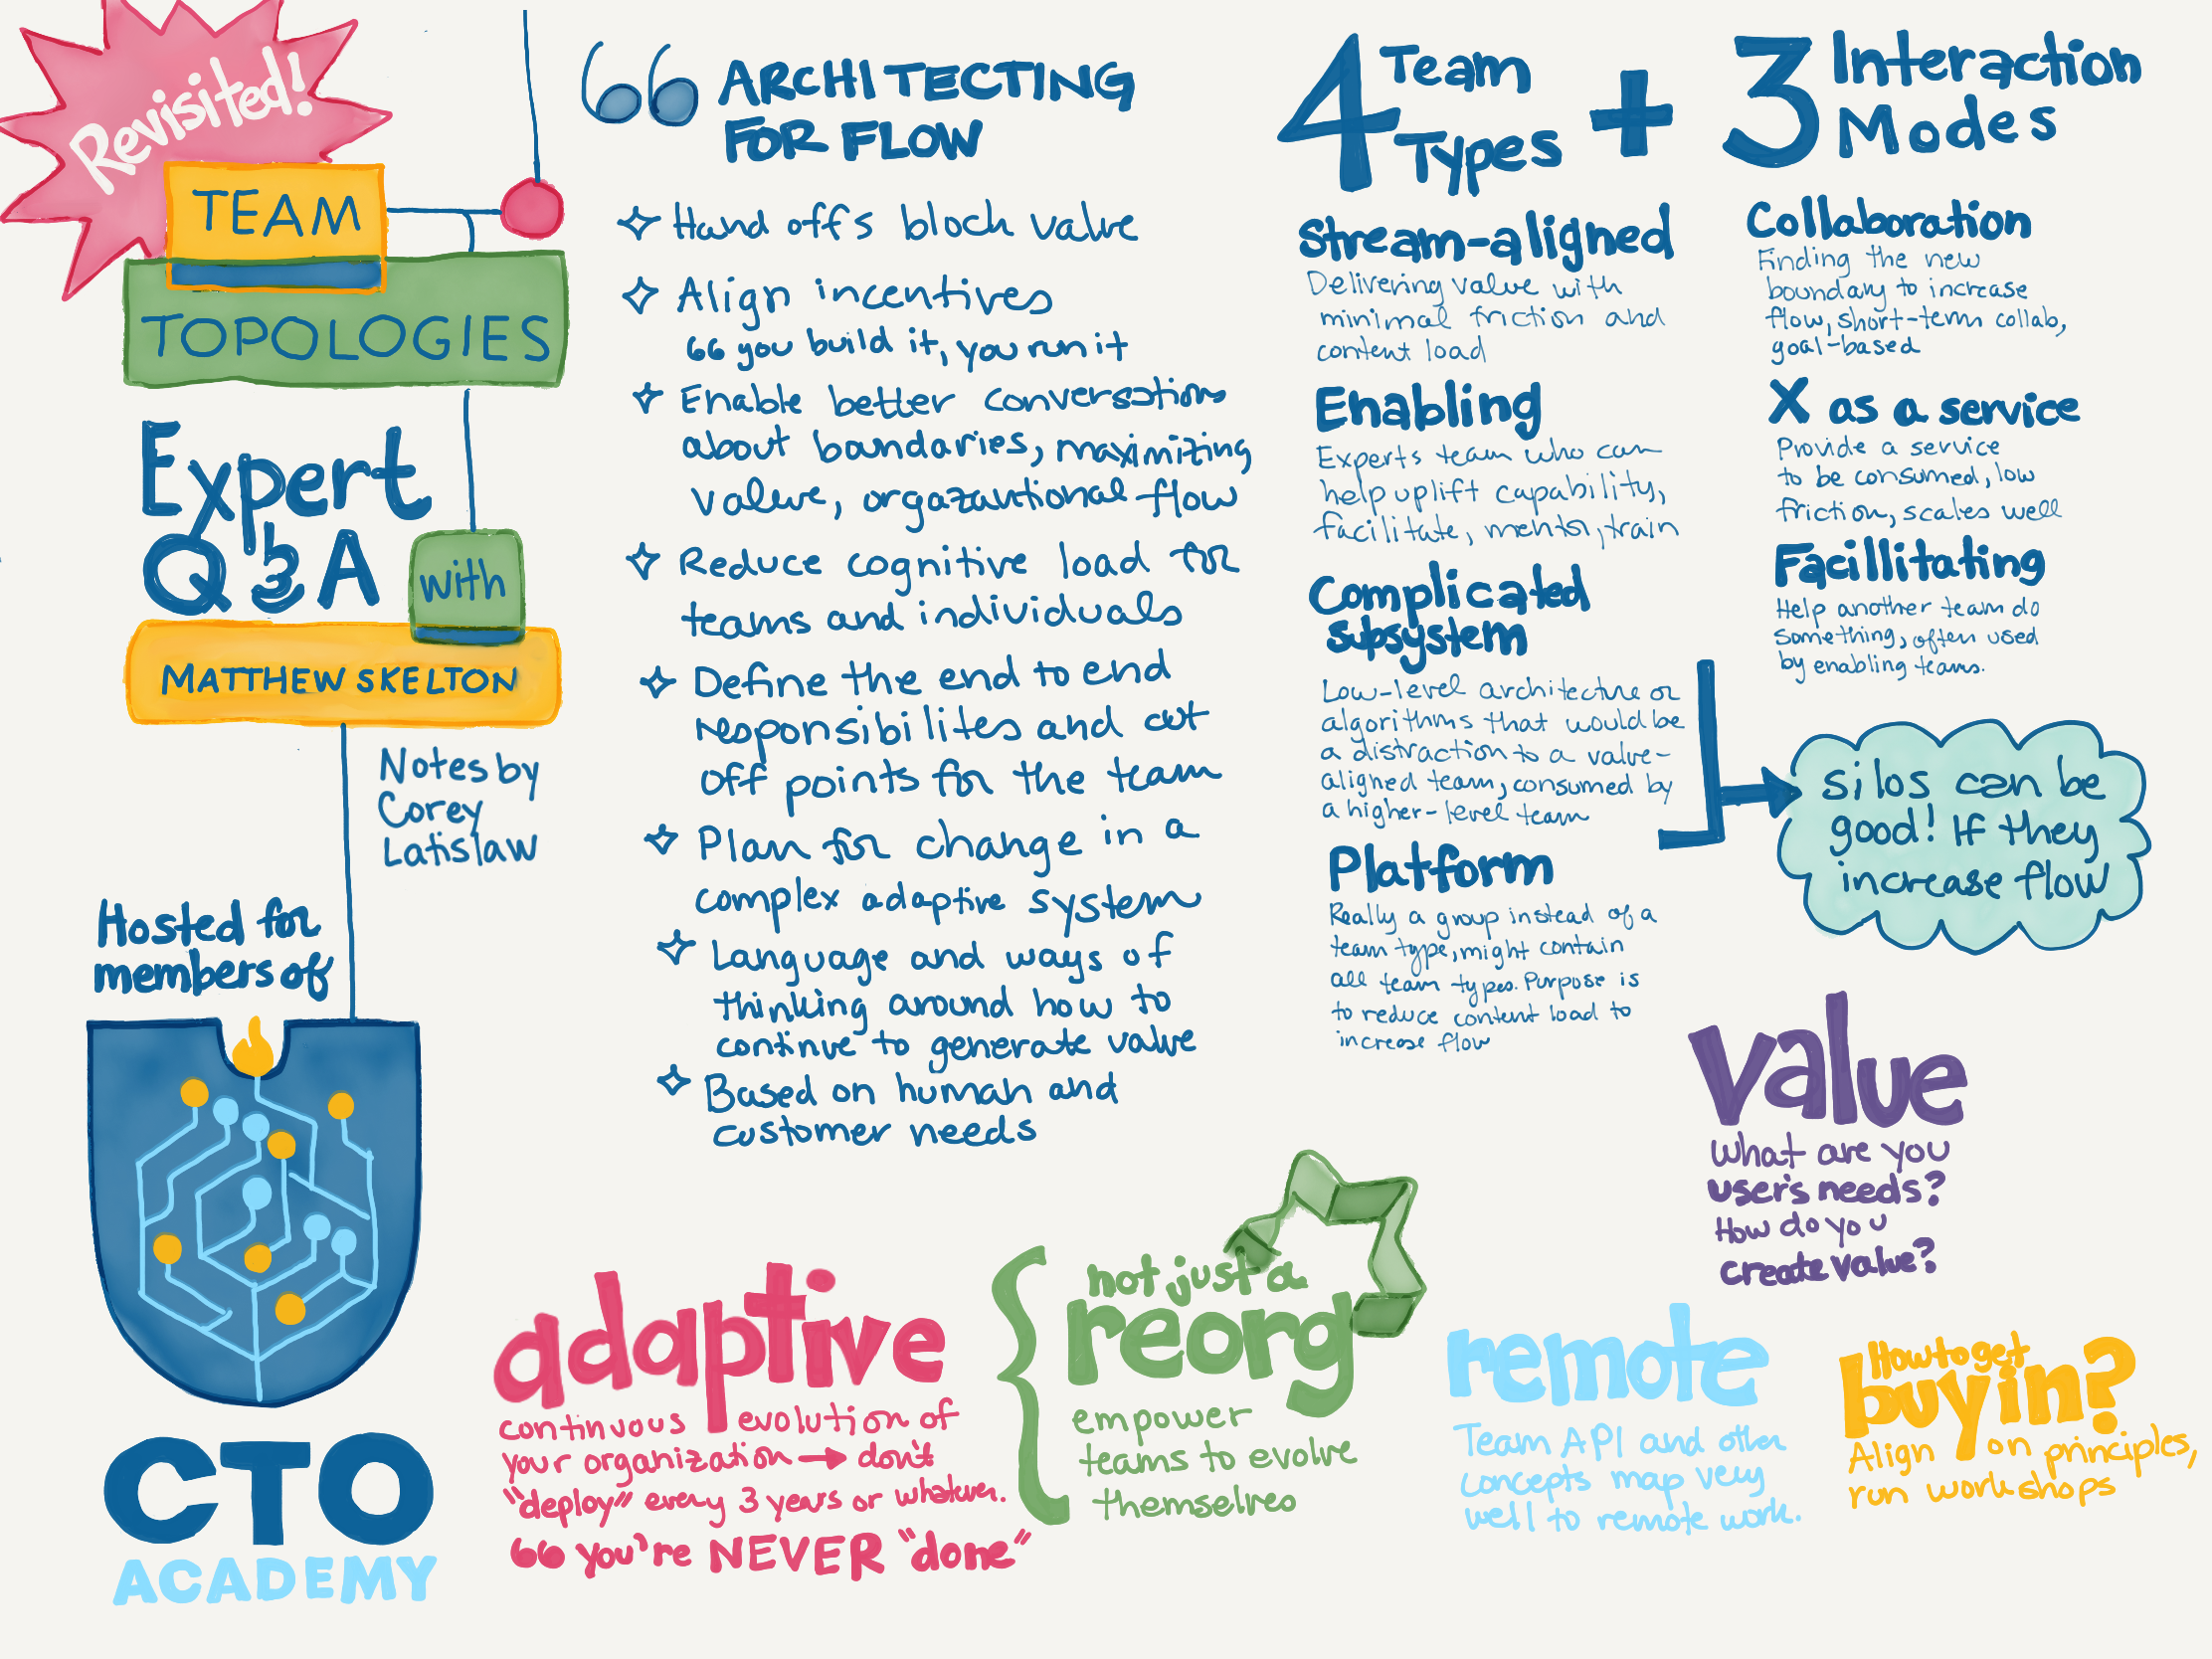 Revisited!
TEAM
TOPOLOGIES
Expert
Q & A with
MATTHEW SKELTON
Notes by
Corey
Latislaw
Hosted for
members of
CTO
ACADEMY
66 ARCHITECTING
FOR FLOW
Hand offs block value
Align incentives
66 you build it, you run it
Enable better conversations
about boundaries, maximizing
value, orgazantional flow
Reduce cognitive load for
teams and individuals
Define the end to end
responsibilites and cut
off points for the team
Plan for change in a
complex adaptive system
Language and ways of
thinking around how to
continue to generate value
Based on human and
customer needs
4 Team
Types + 3 Interaction
Modes
Stream-aligned
Delivering value with
minimal friction and
content load
Enabling
Experts team who can
help uplift capability,
facilitate, mentor, train
Complicated
subsystem
Low-level architecture or
algorithms that would be
a distraction to a value-
aligned team, consumed by
a higher-level team
Platform
Really a group instead of a
team type, might contain
all team types. Purpose is
to reduce content load to
increase flow
Collaboration
Finding the new
boundary to increase
flow, short-term collab,
goal-based
X as a service
Provide a service
to be consumed, low
friction, scales well
Facillitating
Help another team do
something, often used
by enabling teams.
silos can be
good! If they
increase flow
value
What are you
user's needs?
How do you
create value?
adaptive
continuous evolution of
your organization → don't
"deploy" every 3 years or whatever.
66 you're NEVER "done"
not just a
reorg
empower
teams to evolve
themselves
remote
Team API and other
concepts map very
well to remote work.
How to get
buyin?
Align on principles,
run workshops